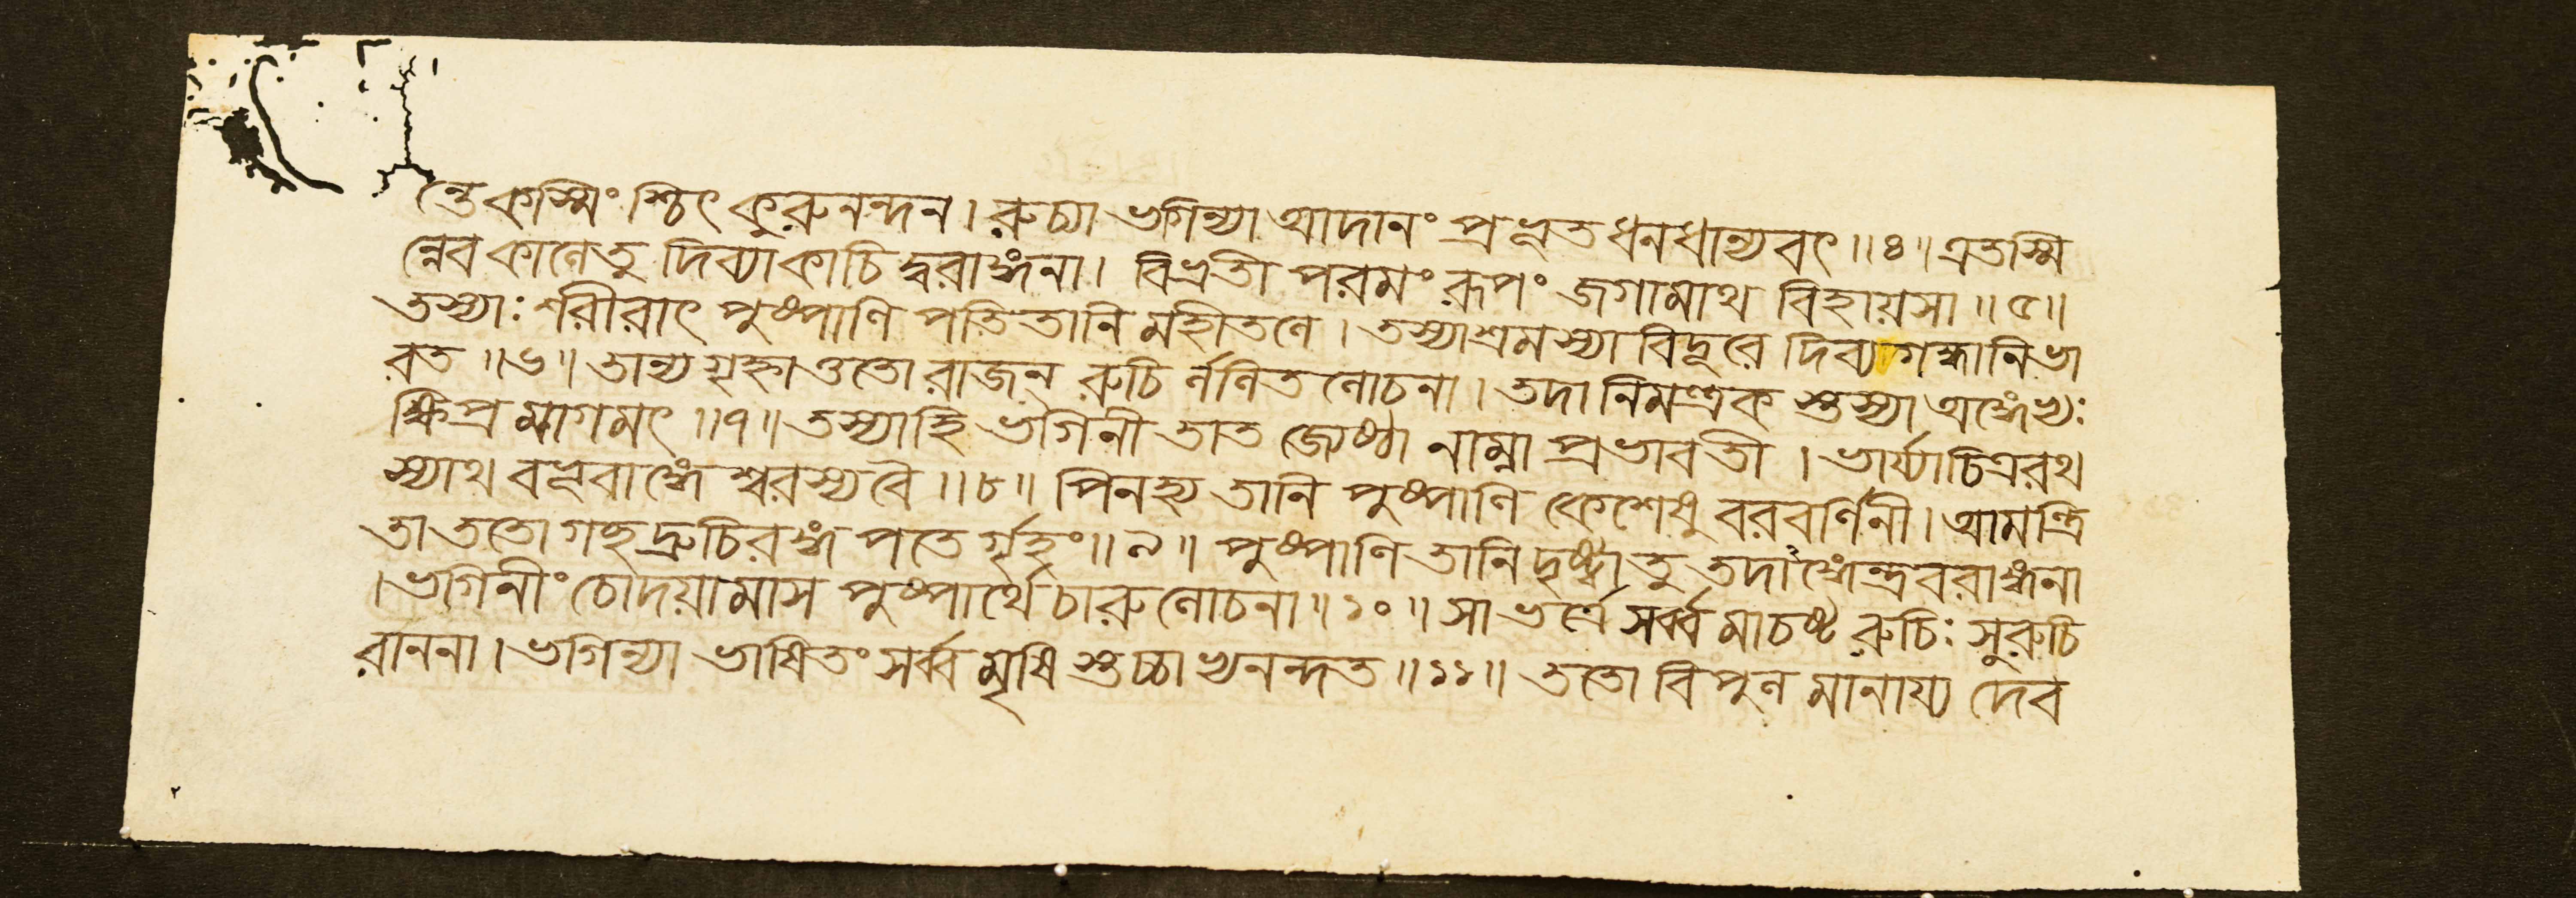 ন্তে কস্মিংশ্চিৎ কুরুনন্দন। রুচ্যা ভগিন্যা আদানং প্রভূত ধনধান্যবৎ॥৪॥ এতস্মি
ন্নেব কালে তু দিব্যা কাচি দ্বরাঙ্গনা। বিভ্রতী পরমং রূপং জগামাথ বিহায়সা॥৫॥
তস্যাঃ শরীরাৎ পুষ্পাণি পতিতানি মহীতলে। তস্যাশ্রমস্যা বিদূরে দিব্যগন্ধানি ভা
রত॥৬॥ তান্য গৃহ্ণাত্ততো রাজন্ রুচি র্ললিত লোচনা। তদা নিমন্ত্রক স্তস্যা অঙ্গেভ্যঃ
ক্ষিপ্র মাগমৎ॥৭॥ তস্যা হি ভগিনী তাত জ্যেষ্ঠা নাম্না প্রভাবতী। ভার্য্যা চিত্ররথ
স্যাথ বভূবাঙ্গেশ্বরস্য বৈ॥৮॥ পিনহ্য তানি পুষ্পাণি কেশেষু বরবর্ণিনী। আমন্ত্রি
তা ততো গচ্ছদ্রুচিরঙ্গ পতে র্গৃহং॥৯॥ পুষ্পাণি তানি দৃষ্ট্বা তু তদাঙ্গেন্দ্রবরাঙ্গনা
। ভগিনীং চোদয়ামাস পুষ্পার্থে চারুলোচনা॥১০॥ সা ভর্ত্রে সর্ব্ব মাচষ্ট রুচিঃ সুরুচি
রাননা। ভগিন্যা ভাষিতং সর্ব্ব মৃষি স্তচ্চাভ্যনন্দত॥১১॥ ততো বিপুল মানায্য দেব